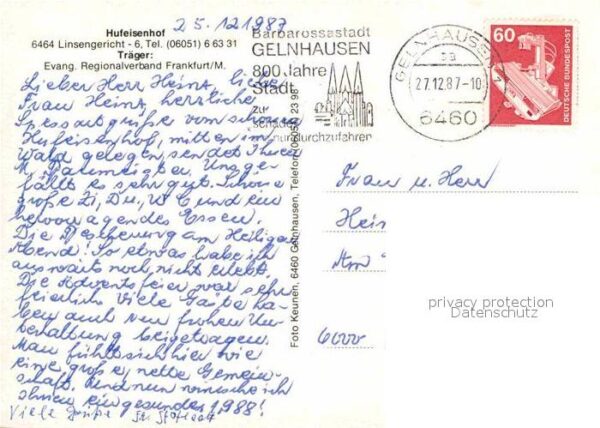 25.12.1987
Hufeisenhof
6464 Linsengericht - 6, Tel. (06051) 6 63 31
Träger:
Evang. Regionalverband Frankfurt/M.
Lieber Herr Heinz, liebe
Frau Heinz, herrliche
Spessartgrüße vom schönen
Hufeisenhof, mitten im
Wald gelegen, sendet Ihnen
M. Baumeister. Uns ge-
fällt es sehr gut. Schöne
große Zi, Du, WC und ein
hervorragendes Essen.
Die Bescherung am Heiligen
Abend! So etwas habe ich
auswärts noch nicht erlebt.
Die Adventsfeier war sehr
feierlich. Viele Gäste ha-
ben auch zur frohen Un-
terhaltung beigetragen.
Man fühlt sich hier wie
eine große, nette Gemein-
schaft. Und nun wünsche ich
Ihnen ein gesundes 1988!
Viele Grüße
Barbarossastadt
GELNHAUSEN
800 Jahre
Stadt
zu
schade
nur durchzufahren
GELNHAUSEN
27.12.87-10
6460
60
DEUTSCHE BUNDESPOST
Foto Keunen, 6460 Gelnhausen, Telefon (06051) 2398
Frau u. Herr
Hein
Am
6000
privacy protection
Datenschutz